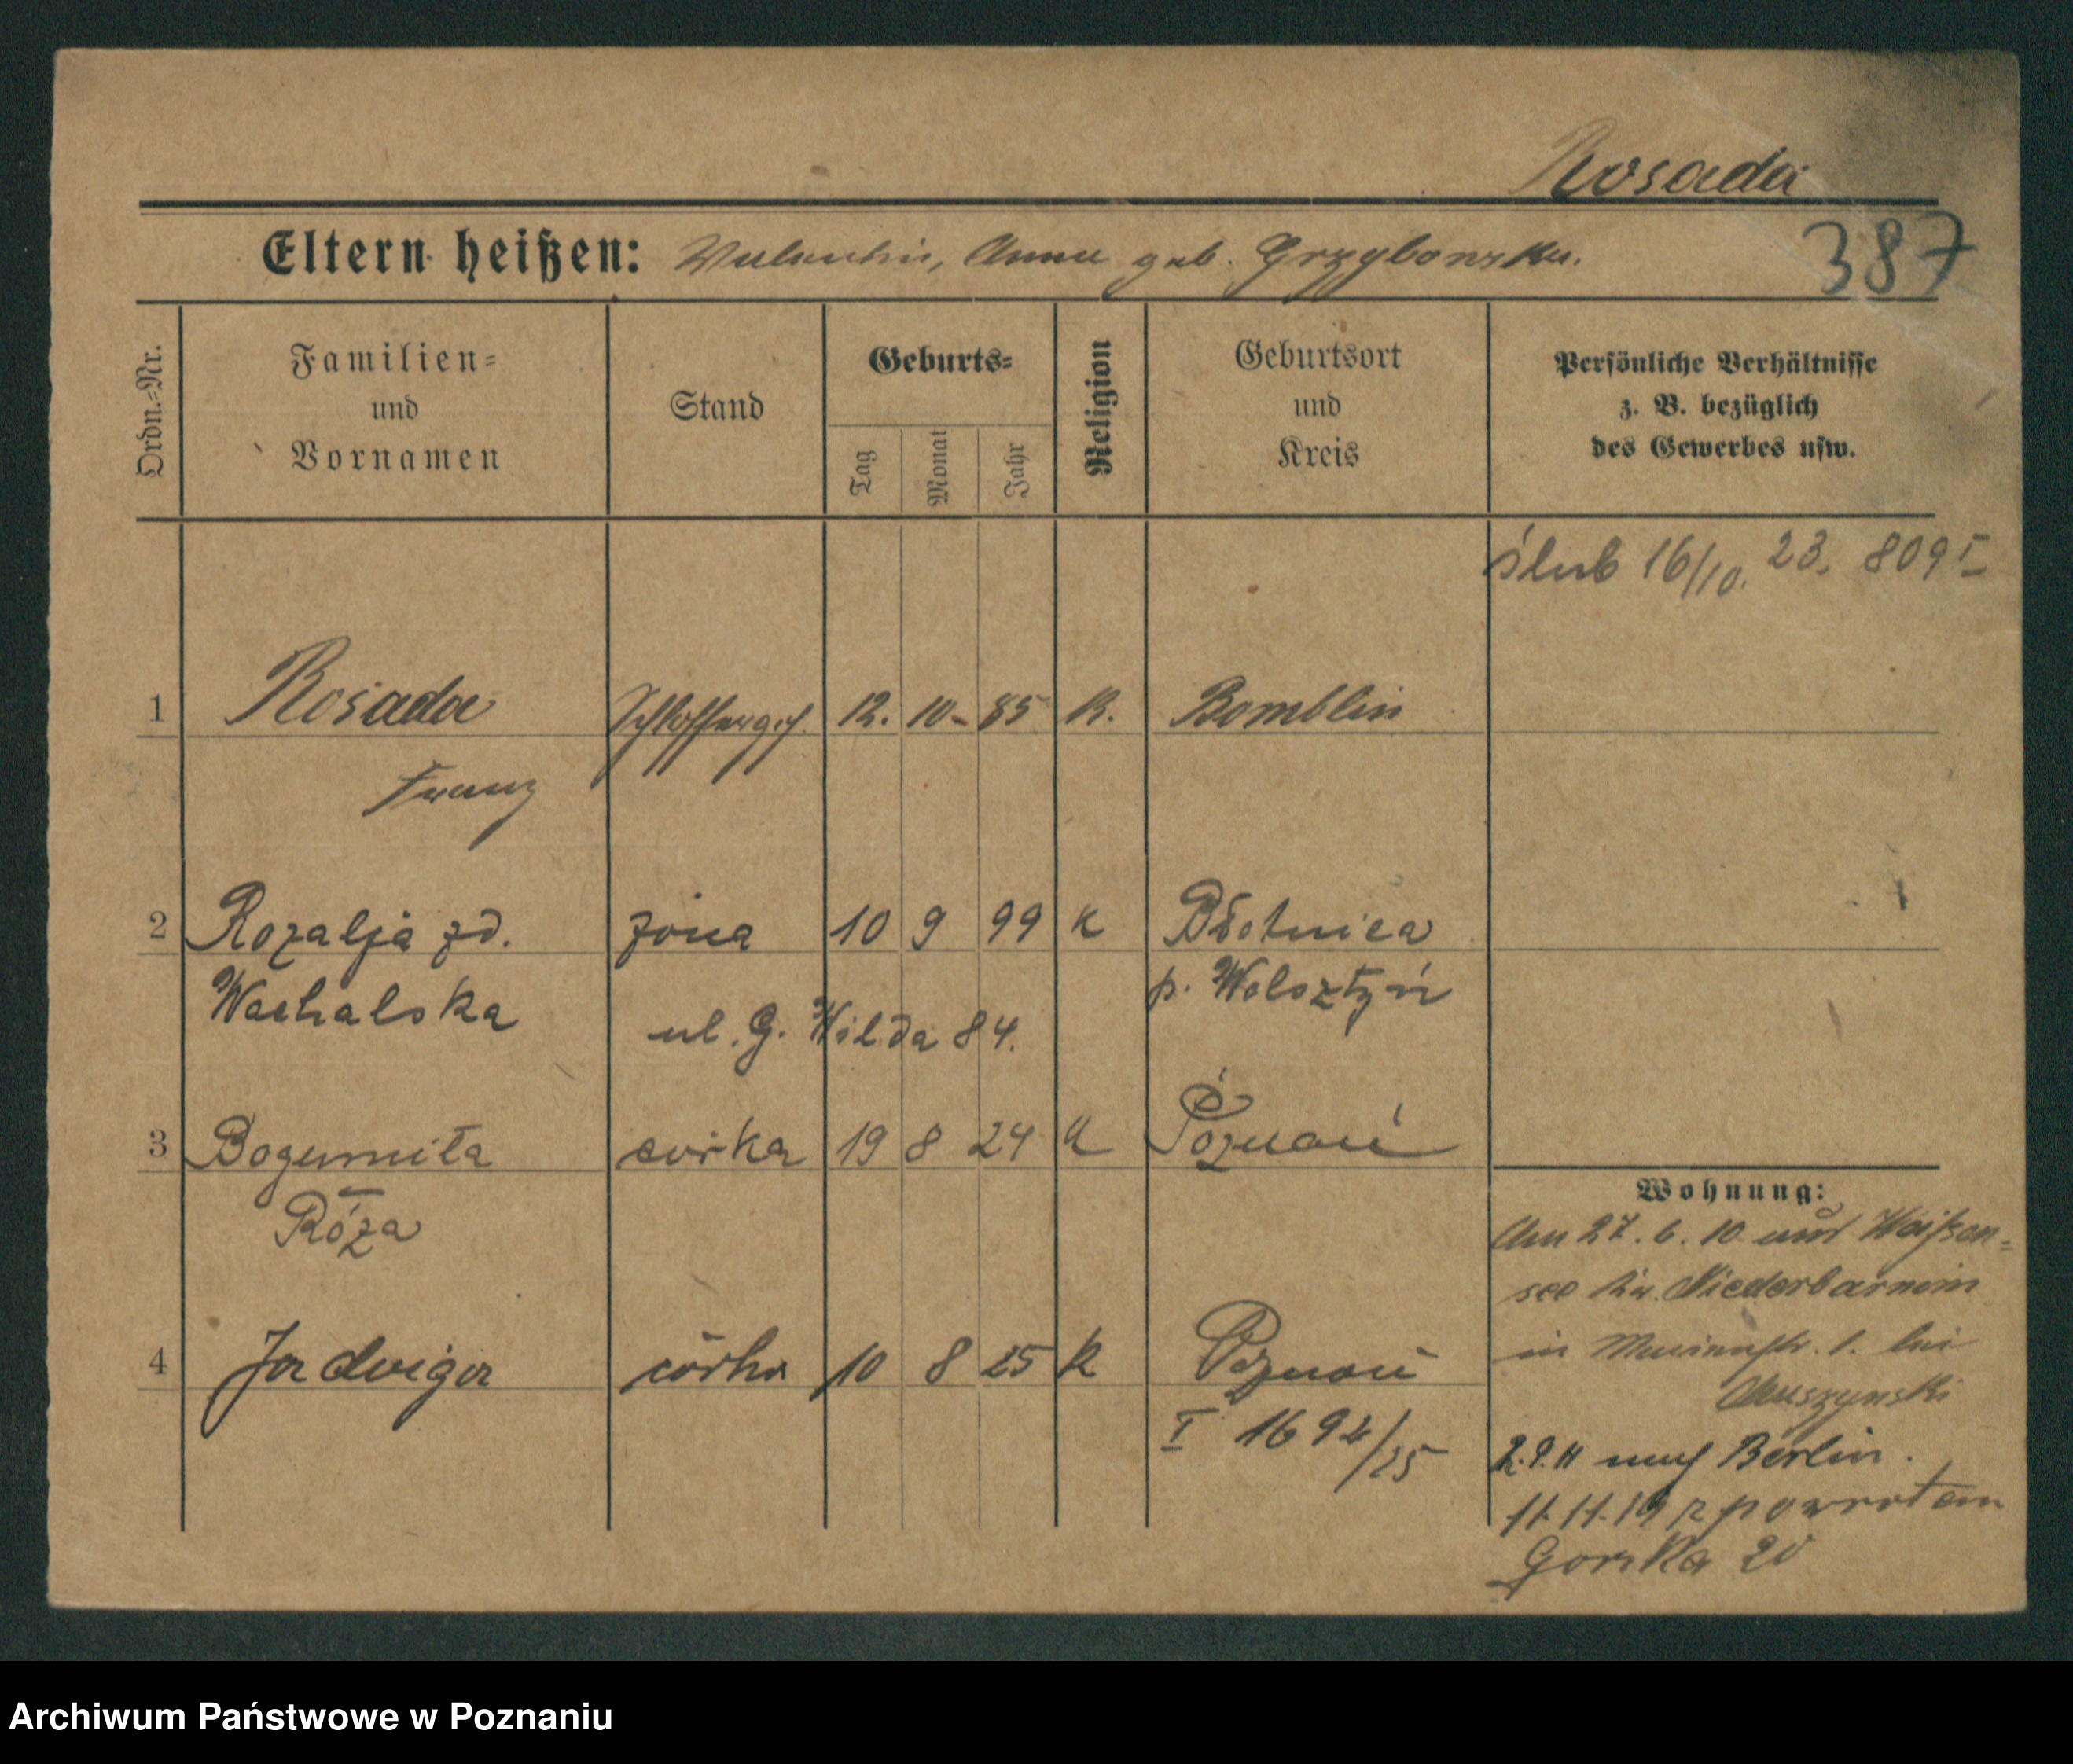 Rosada
Eltern heißen: Valentin, Anna geb. Grzybowska.
387
Ordn.=Nr.
Familien=
und
Vornamen
Stand
Geburts=
Tag
Monat
Jahr
Religion
Geburtsort
und
Kreis
Persönliche Verhältnisse
z. B. bezüglich
des Gewerbes usw.
ślub 16/10. 23. 809 I
1 Rosada Schlosserges. 12. 10. 85 K. Bomblin
Franz
2 Rozalja zd. żona 10 9 99 K Błotnica
Wachalska p. Wolsztyn
ul. G. Wilda 84.
3 Bogumiła córka 19 8 24 K Poznań
Róża
4 Jadwiga córka 10 8 25 K Poznań
I 1692/25
Wohnung:
Am 27. 6. 10 und Weißen=
see Kr. Niederbarnim
in 1. bei
2.9.11 nach Berlin.
11.11.19 z powrotem
Gorska 20
Archiwum Państwowe w Poznaniu